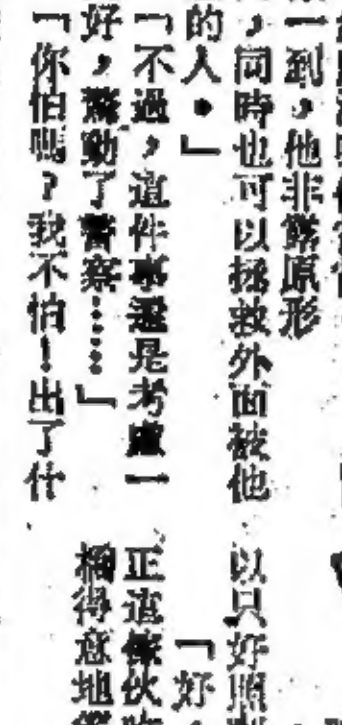 一到，他非露原形
，同時也可以拯救外面被他
的人。」
「不過，這件事還是考慮一
好，驚動了警察……」
「你怕嗎？我不怕！出了什
以只好照
「好
正這傢伙
得意地